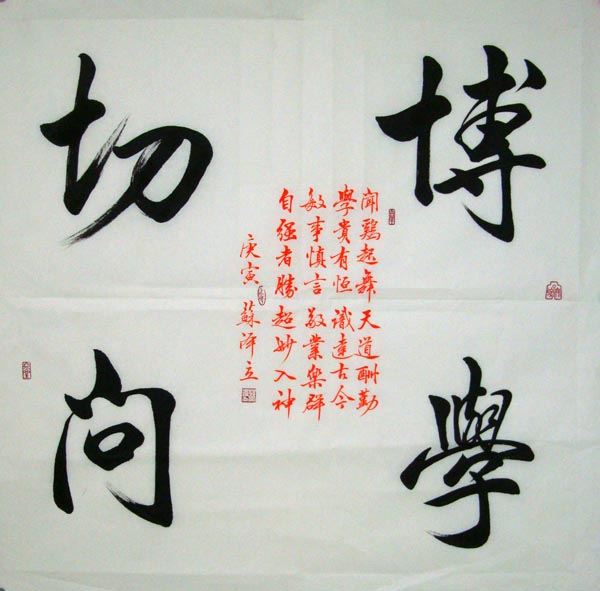 博學
切問
聞鷄起舞天道酬勤
學貴有恒識達古今
敏事慎言敬業樂群
自强者勝超妙入神
庚寅蘇澤立